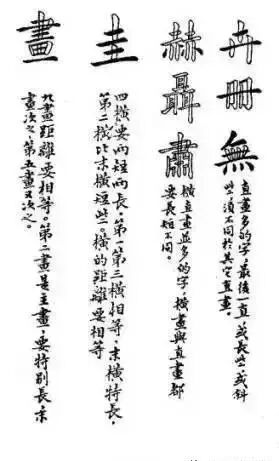 卉冊無
直畫多的字,最後一直,或長些,或斜
些,須不同於其它直畫。
赫聶肅
橫直畫並多的字,橫畫與直畫都
要長短不同。
圭
四橫要兩短兩長,第一第三橫相等,末橫特長,
第二橫比末橫短些。橫的距離要相等
畫
九畫距離要相等。第二畫是主畫,要特別長,末
畫次之,第五畫又次之。